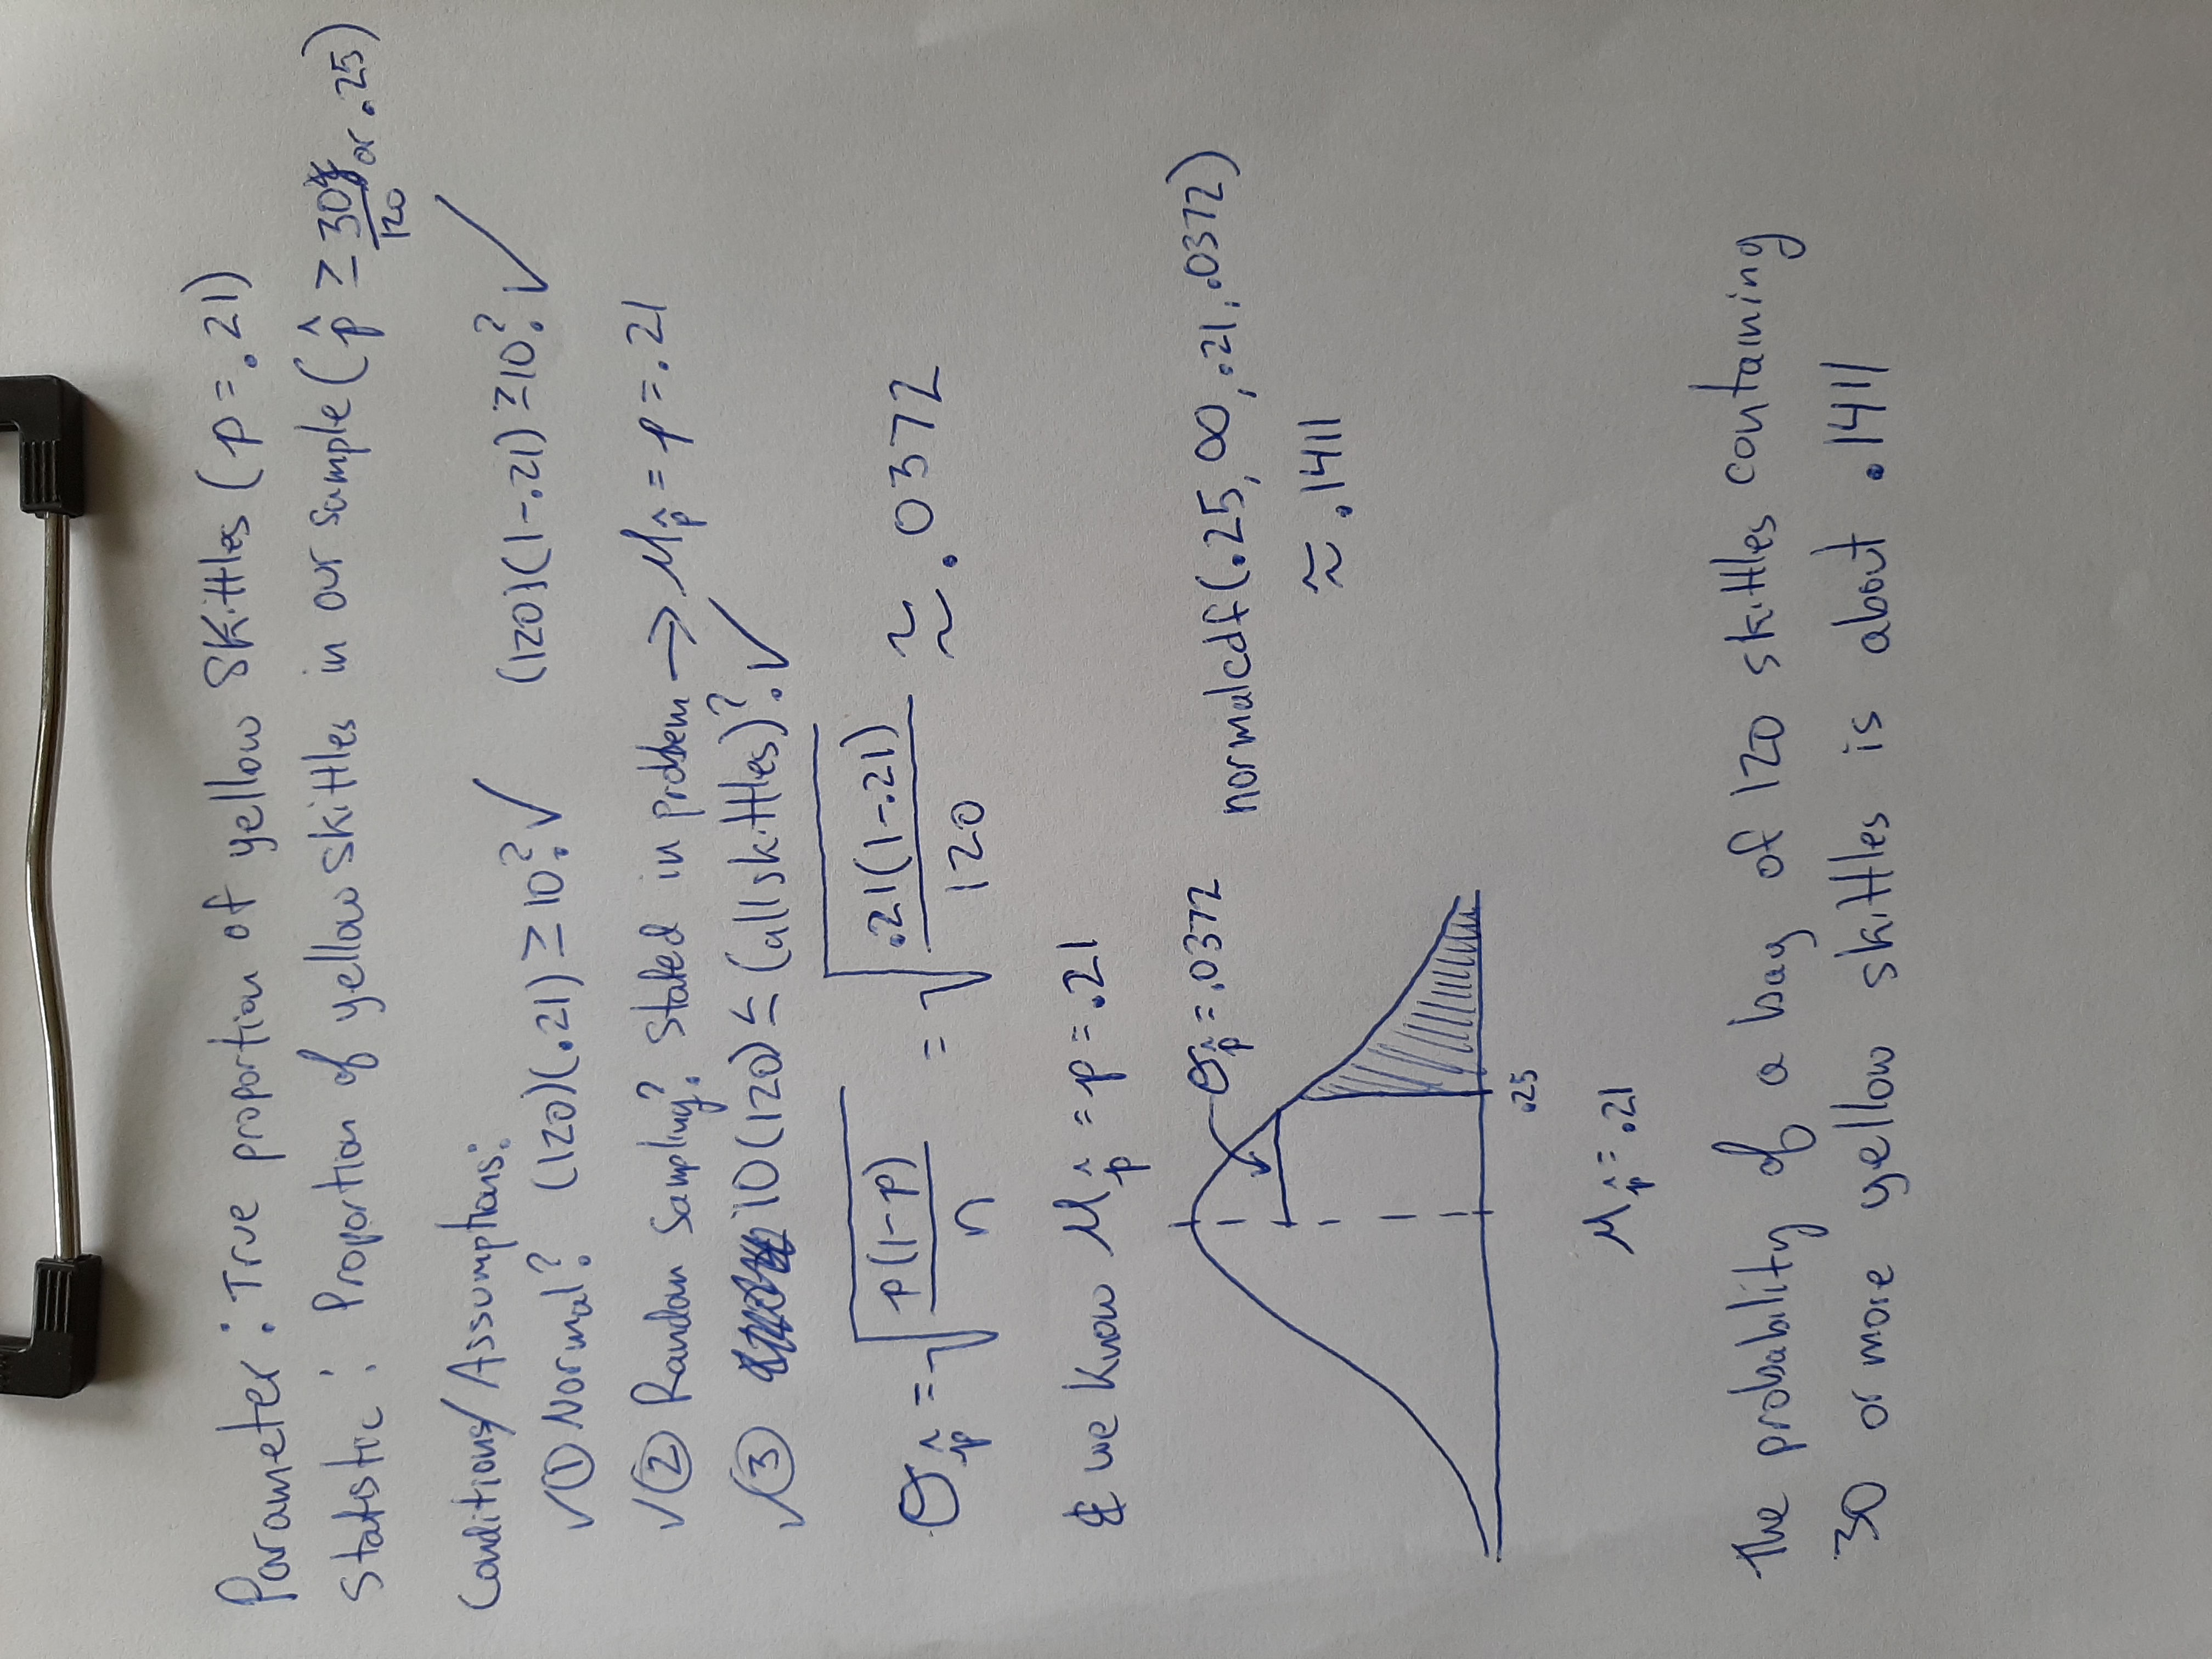 Parameter: True proportion of yellow Skittles (p = .21)
Statistic: Proportion of yellow skittles in our sample (p̂ ≥ 30/120 or .25)
Conditions/Assumptions:
✓① Normal? (120)(.21) ≥ 10? ✓ (120)(1-.21) ≥ 10? ✓
✓② Random Sampling? Stated in problem → μp̂ = p = .21
✓③ 10(120) ≤ (all skittles)? ✓
σp̂ = √(p(1-p)/n) = √(.21(1-.21)/120) ≈ .0372
& we know μp̂ = p = .21
σp̂ = .0372 normalcdf(.25, ∞, .21, .0372)
≈ .1411
.25
μp̂ = .21
The probability of a bag of 120 skittles containing
30 or more yellow skittles is about .1411